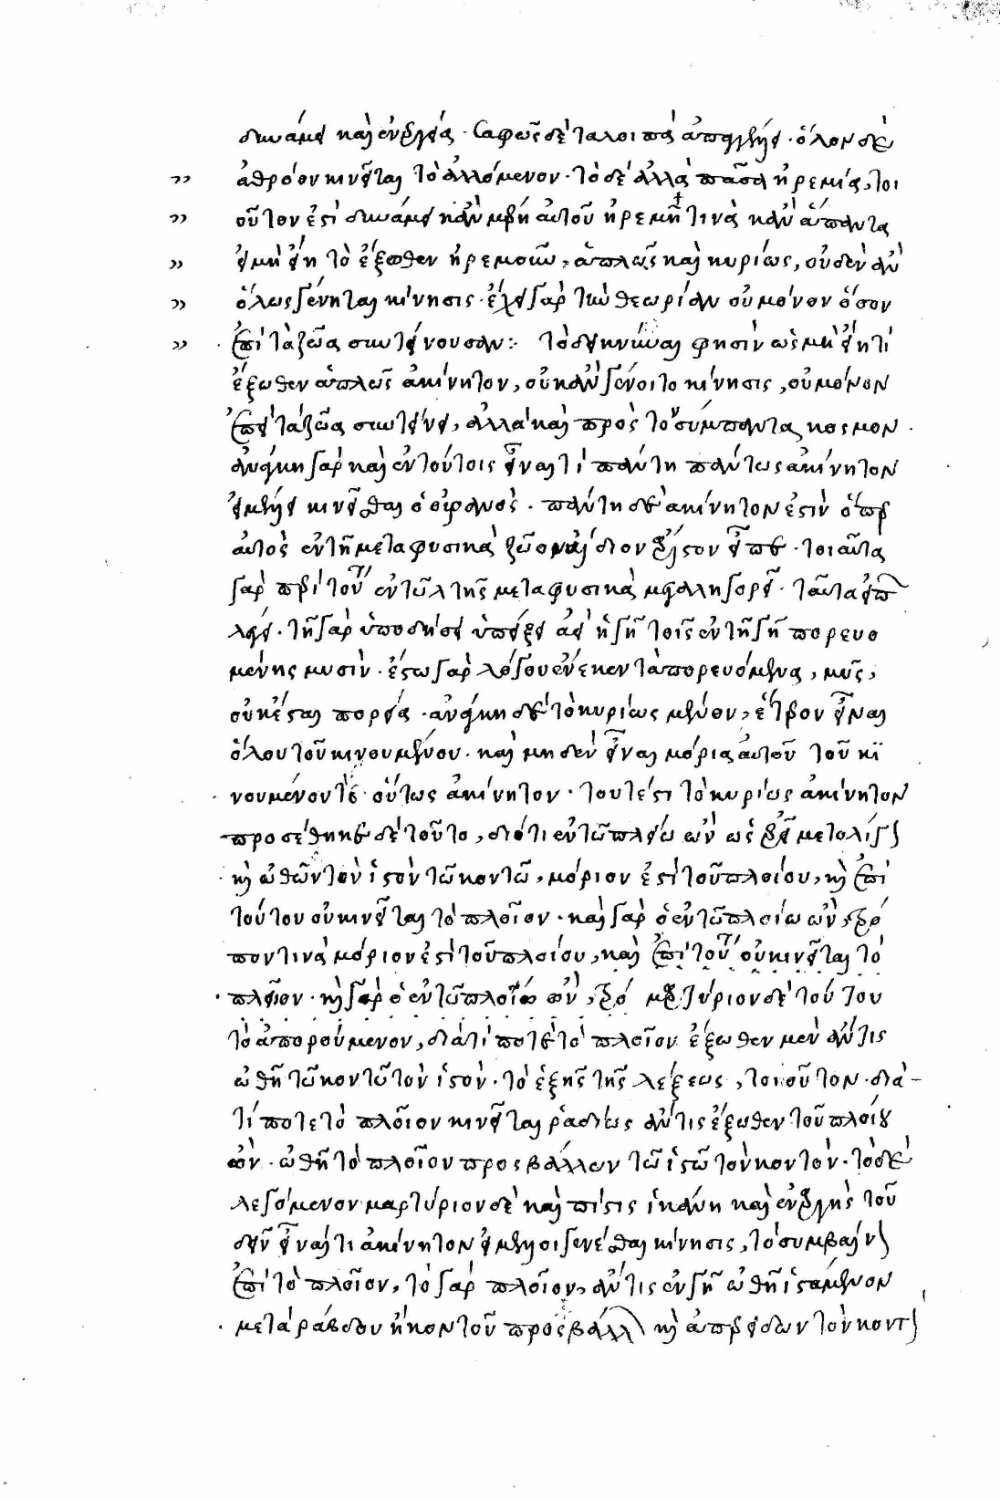 δυνάμει καὶ ἐνεργείᾳ · Σαφῶς δὲ τὰ λοιπὰ ἀπαγγέλλει · ὅλον δὲ
ἀθρόον κινεῖται τὸ ἁλλόμενον · τὸ δὲ ἀλλὰ πᾶσα ἠρεμία, τοι
οῦτον ἐστὶ δυνάμει κἂν μέρη αὐτοῦ ἠρεμῇ τινὰ κἂν ἅπαντα
εἰ μὴ εἴη τὸ ἔξωθεν ἠρεμοῦν, ἁπλῶς καὶ κυρίως, οὐδὲν ἂν
ὅλως γένηται κίνησις · ἔχει γὰρ τὴν θεωρίαν οὐ μόνον ὅσον
ἐπὶ τὰ ζῶα συντείνουσαν : τὸ δὲ φησιν ὡς μὴ εἴη τι
ἔξωθεν ἁπλῶς ἀκίνητον, οὐκ ἂν γένοιτο κίνησις, οὐ μόνον
ἐπεὶ τὰ ζῶα συντείνει, ἀλλὰ καὶ πρὸς τὸν σύμπαντα κόσμον ·
ἀνάγκη γὰρ καὶ ἐν τούτοις εἶναί τι πάντη πάντως ἀκίνητον
εἰ μέλλει κινεῖσθαι ὁ οὐρανός · πάντη δὲ ἀκίνητον ἐστὶν ὅπερ
αὐτὸς ἐν τῇ μεταφυσικᾷ ζῶον ἀΐδιον ἄριστον εἶπε · τοιαῦτα
γὰρ περὶ τούτου ἐν τῶ λ τῆς μεταφυσικᾶ μεγαληγορεῖ · ταῦτα εἰπ
λέγει · τῇ γὰρ ὑποδόσει ὑπείξει ἀεὶ ἡ γῆ τοῖς ἐν τῇ γῇ πορευο
μένης μυσὶν · ἔστω γὰρ λόγου ἕνεκεν τὰ πορευόμενα, μῦς,
οὐκ ἔσται πορεία · ἀνάγκη δὲ τὸ κυρίως μένον, ἕτερον εἶναι
ὅλου τοῦ κινουμένου · καὶ μηδὲν εἶναι μόριον αὐτοῦ τοῦ κι
νουμένου τὸ οὕτως ἀκίνητον · τουτέστι τὸ κυρίως ἀκίνητον
προσέθηκε δὲ τοῦτο, διότι ἐν τῶ πλοίω ὢν ὡς ἐρεῖ μετ' ὀλίγον
κὴ ὠθῶν τὸν ἱστὸν τῶ κοντῶ, μόριον ἐστὶ τοῦ πλοίου, κὴ ἐπὶ
τούτου οὐ κινεῖται τὸ πλοῖον · καὶ γὰρ ὁ ἐν τῶ πλοίω ὢν τρό
πον τινὰ μόριον ἐστὶ τοῦ πλοίου, καὶ ἐπὶ τούτου οὐ κινεῖται τὸ
πλοῖον · κὴ γὰρ ὁ ἐν τῶ πλοίω ὢν, μαρτύριον δὲ τούτου
τὸ ἀπορούμενον, διατί ποτε τὸ πλοῖον ἔξωθεν μὲν ἄν τις
ὠθῇ τῶ κοντῶ τὸν ἱστὸν · τὸ ἑξῆς τῆς λέξεως, τοιοῦτον · διὰ-
τί ποτε τὸ πλοῖον κινεῖται ῥαδίως ἄν τις ἔξωθεν τοῦ πλοίου
ὢν · ὠθῇ τὸ πλοῖον προσβάλλων τῶ ἱστῶ τὸν κοντὸν · τὸ δὲ
λεγόμενον μαρτύριον δὲ καὶ πίστις ἱκανὴ καὶ ἐναργὴς τοῦ
δεῖν εἶναι τι ἀκίνητον εἰ μέλλοι γενέσθαι κίνησις, τὸ συμβαῖνον
ἐπὶ τὸ πλοῖον, τὸ γὰρ πλοῖον, ἄν τις ἐν γῇ ὠθῇ ἱστάμενον
μετὰ ράβδου ἢ κοντοῦ προσβάλλων κὴ ἀπερείδων τὸν κοντ